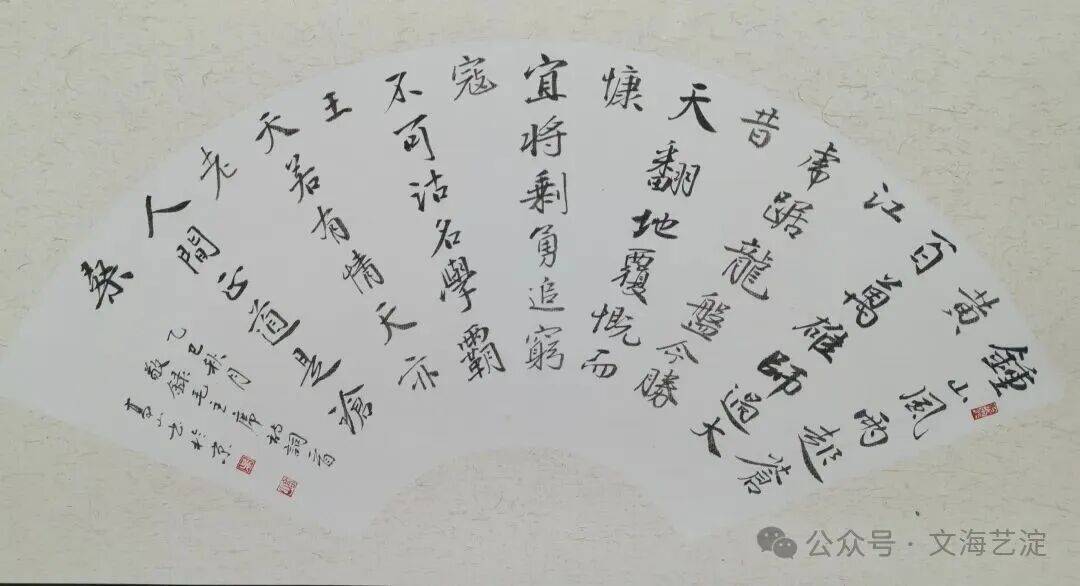 鍾山風雨起蒼
黄
百萬雄師過大
江
虎踞龍盤今勝
昔
天翻地覆慨而
慷
宜將剩勇追窮
寇
不可沽名學霸
王
天若有情天亦
老
人間正道是滄
桑
乙巳秋月
敬録毛主席詞
山书於京
公众号 · 文海艺淀